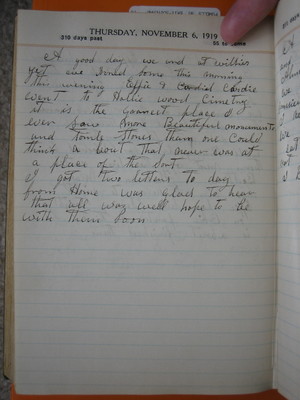 THURSDAY, NOVEMBER 6, 1919
310 days past
55 to come
A good day we and at willies
yet one Irvid borne this morning
this evening Effie & Candid Candie
went to Hollie wood Cimetry
it is the parnest place I
ever saw more Beautiful monuments
and tomb stones than one could
think a bout that never was at
a place of the sort.
I got two letters to day
from Home was glad to hear
that all was well hope to be
with them soon